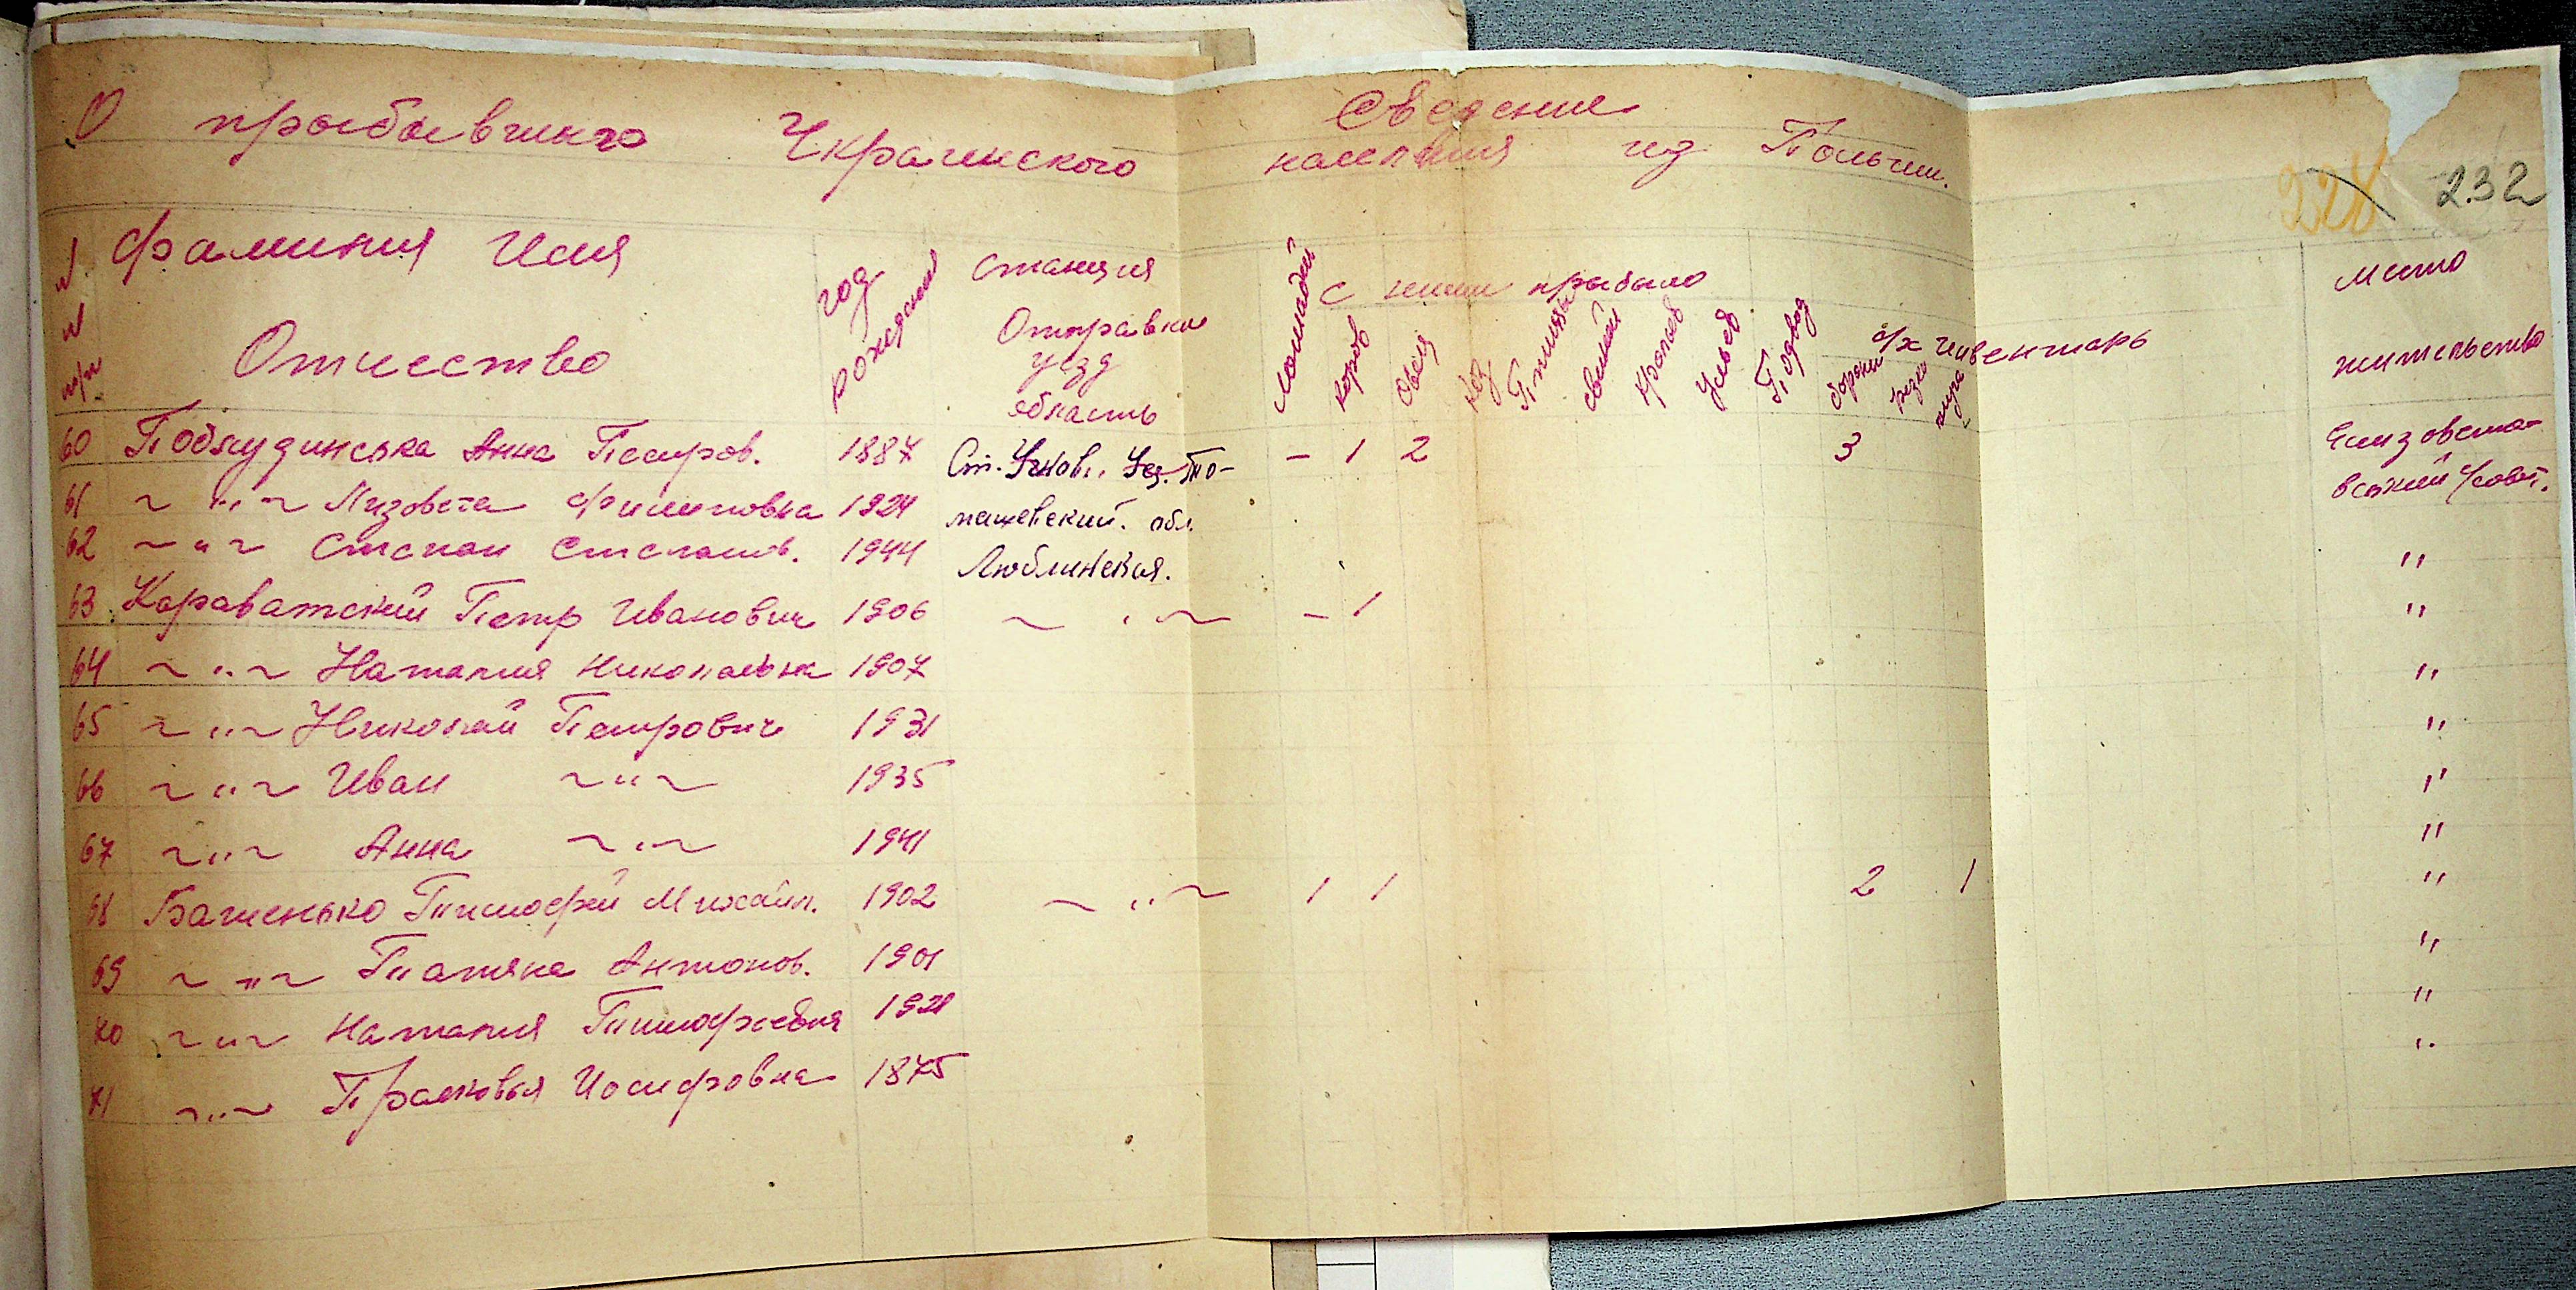 Сведения
О прыбывшего Украинского населения из Польши.
228 232
N N п/п Фамилия Имя Отчество год рождения станция Отправки уезд область с ними прыбыло место жительство
Лошадей коров Овец коз Птицы свиней Кролев Ульев Подвод с/х инвентарь
бороны
60 Побжудинська Анна Петров. 1887 Ст. Угнов.. Уез. То- - 1 2 3 Елизовета-
61 ~ " ~ Лизовета Филиповка 1924 машевский. обл. вський с/совет.
62 ~ " ~ Степан Степанов. 1944 Люблинская. "
63 Караватский Петр Иванович 1906 ~ " ~ - 1 "
64 ~ " ~ Наталия Николаевна 1907 "
65 ~ " ~ Николай Петрович 1931 "
66 ~ " ~ Иван ~ " ~ 1935 "
67 ~ " ~ Анна ~ " ~ 1941 "
68 Баженько Тимофей Михайл. 1902 ~ " ~ 1 1 2 1 "
69 ~ " ~ Татяна Антонов. 1901 "
70 ~ " ~ Наталия Тимофеевна "
71 ~ " ~ Прасковья Иосифовна 1875 "